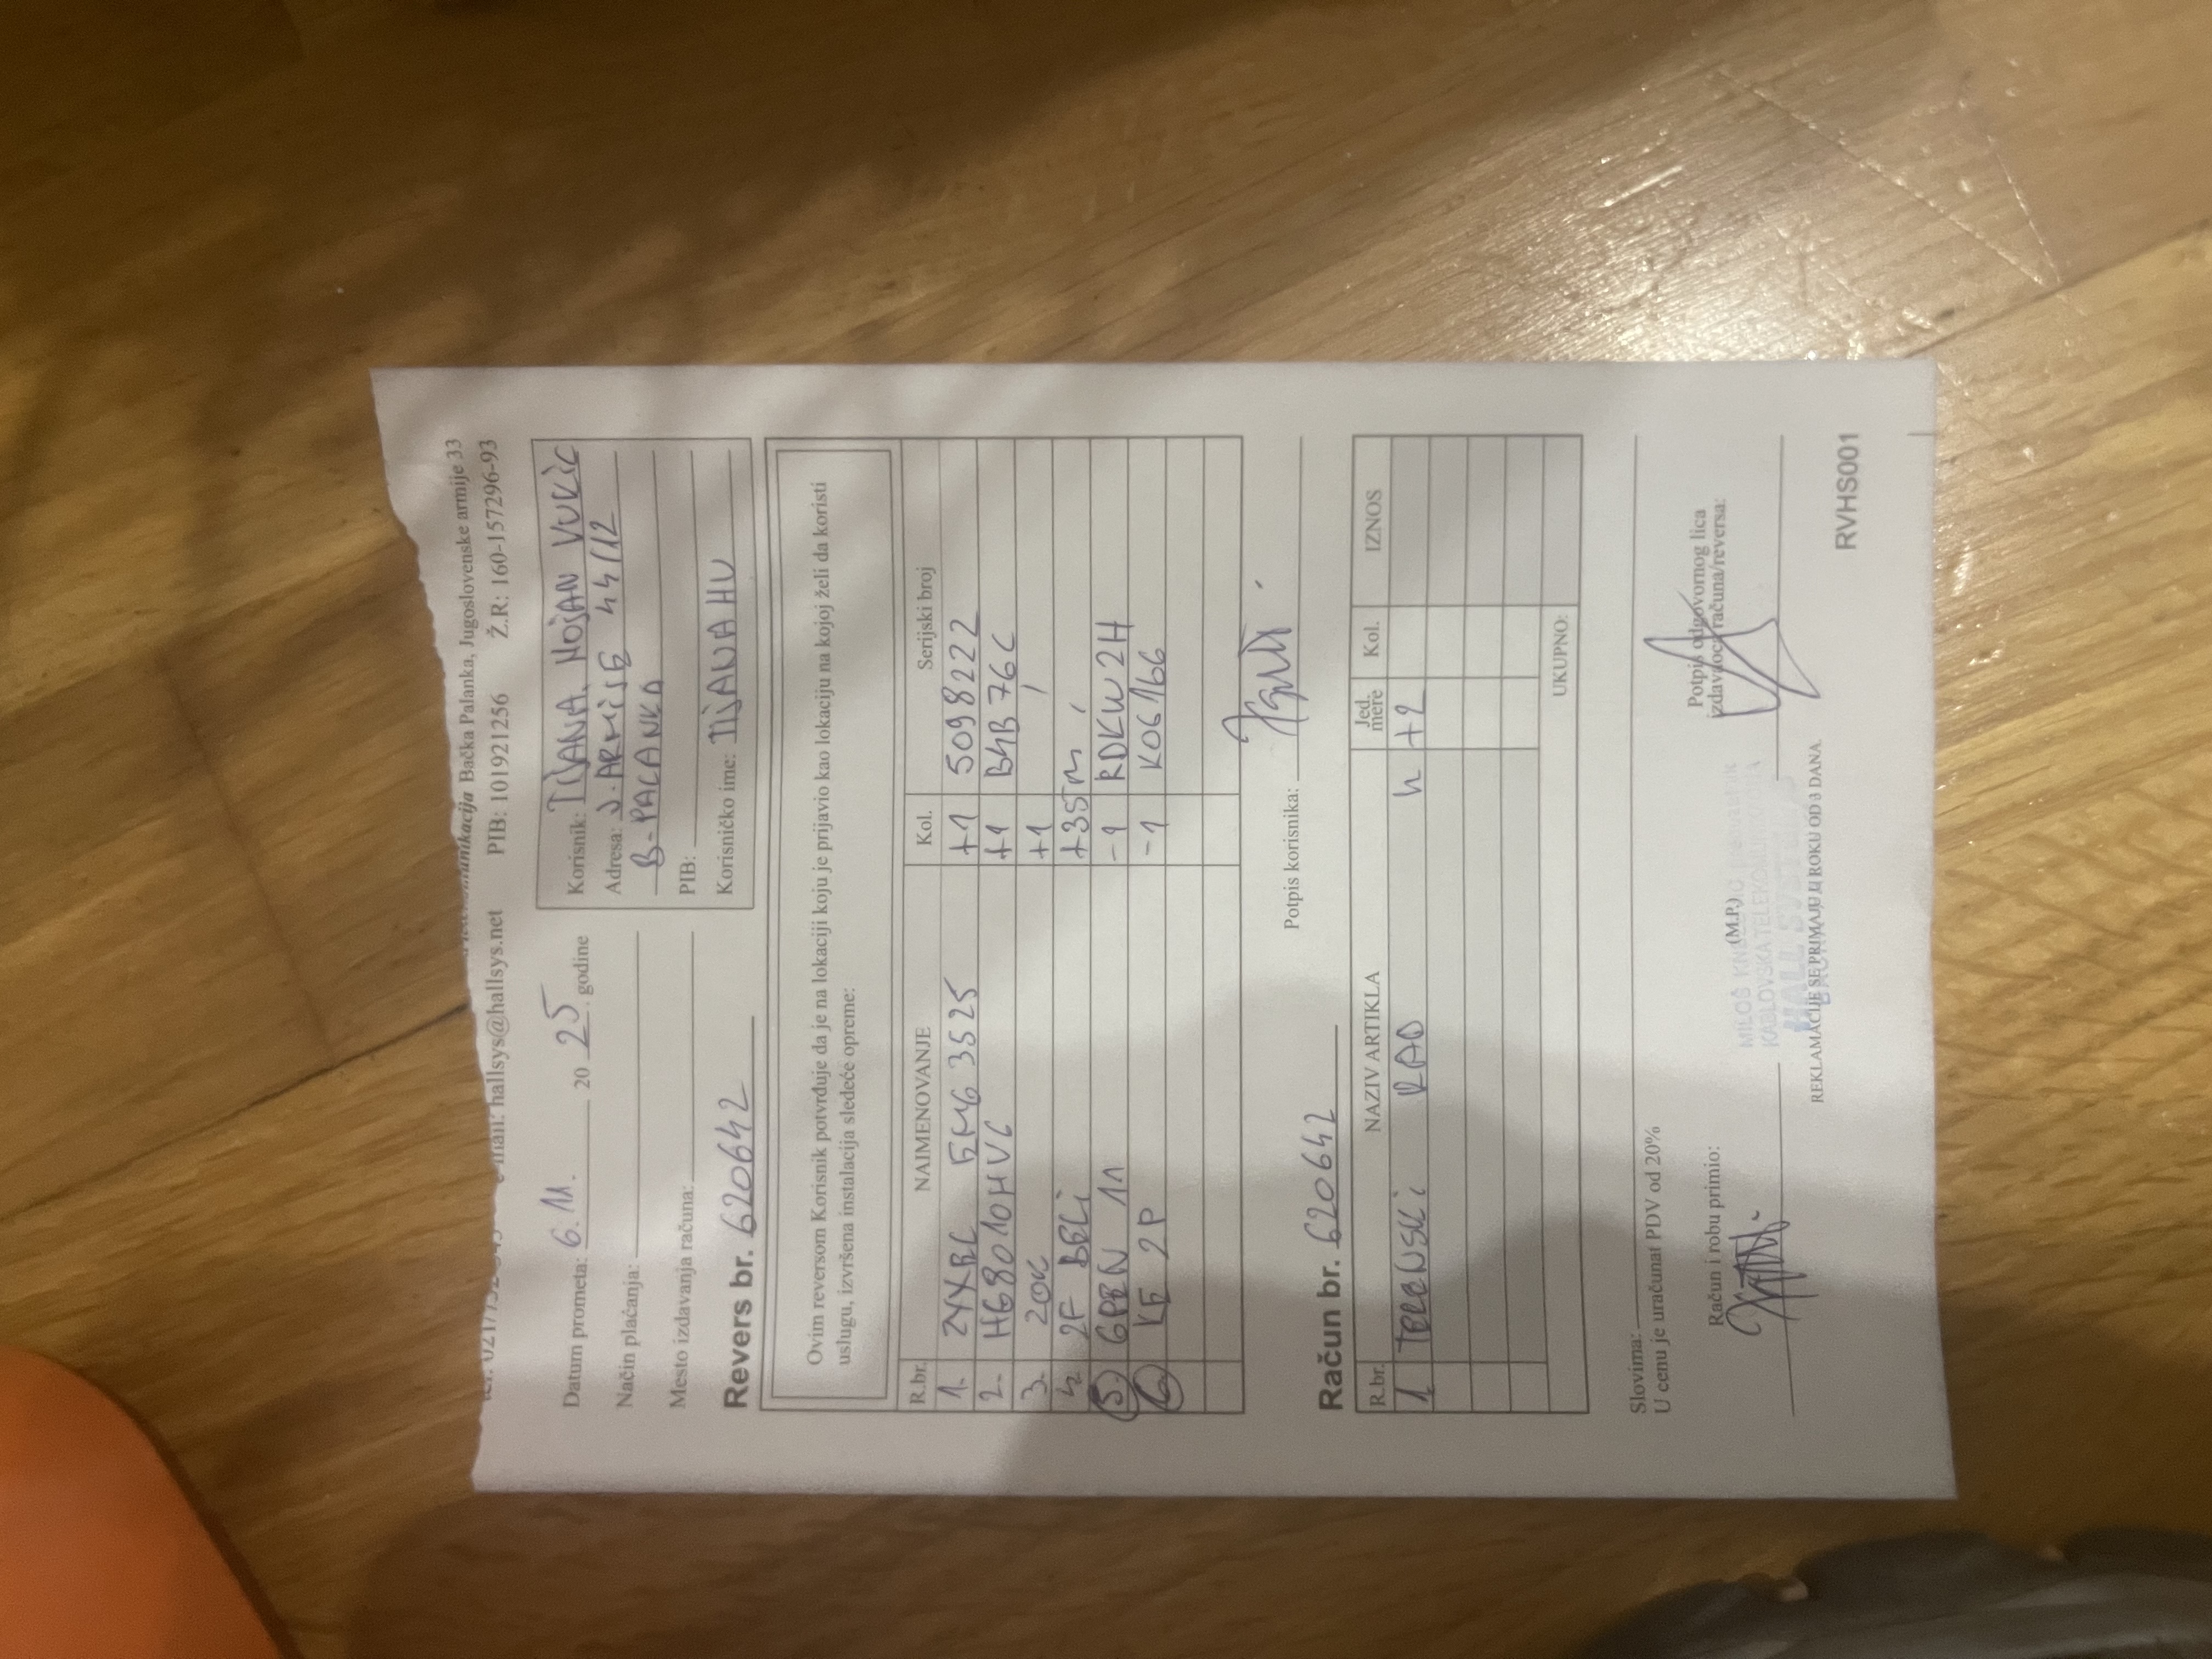 Bačka Palanka, Jugoslovenske armije 33
hallsys@hallsys.net PIB: 101921256 Ž.R: 160-157296-93
Datum prometa: 6.11. 20 25. godine
Način plaćanja:
Mesto izdavanja računa:
Korisnik: TIJANA VUKIĆ
Adresa: J. ARMIJE 44/12
B-PALANKA
PIB:
Korisničko ime: TIJANAHU
Revers br. 620642
Ovim reversom Korisnik potvrđuje da je na lokaciji koju je prijavio kao lokaciju na kojoj želi da koristi
uslugu, izvršena instalacija sledeće opreme:
R.br. NAIMENOVANJE Kol. Serijski broj
1. 3525 +1 5098222
2. HG8010HVC +1 B4B76C
3. ZOK +1
4. 2F BELI +35m
5. 11 -1 RDKW2H
6. 2P -1 K06166
Potpis korisnika:
Račun br. 620642
R.br. NAZIV ARTIKLA Jed. mere Kol. IZNOS
1. TERENSKI RAD h +2
UKUPNO:
Slovima:
U cenu je uračunat PDV od 20%
Račun i robu primio:
(M.P.)
Potpis odgovornog lica
izdavaoca računa/reversa:
REKLAMACIJE SE PRIMAJU U ROKU OD 3 DANA.
RVHS001